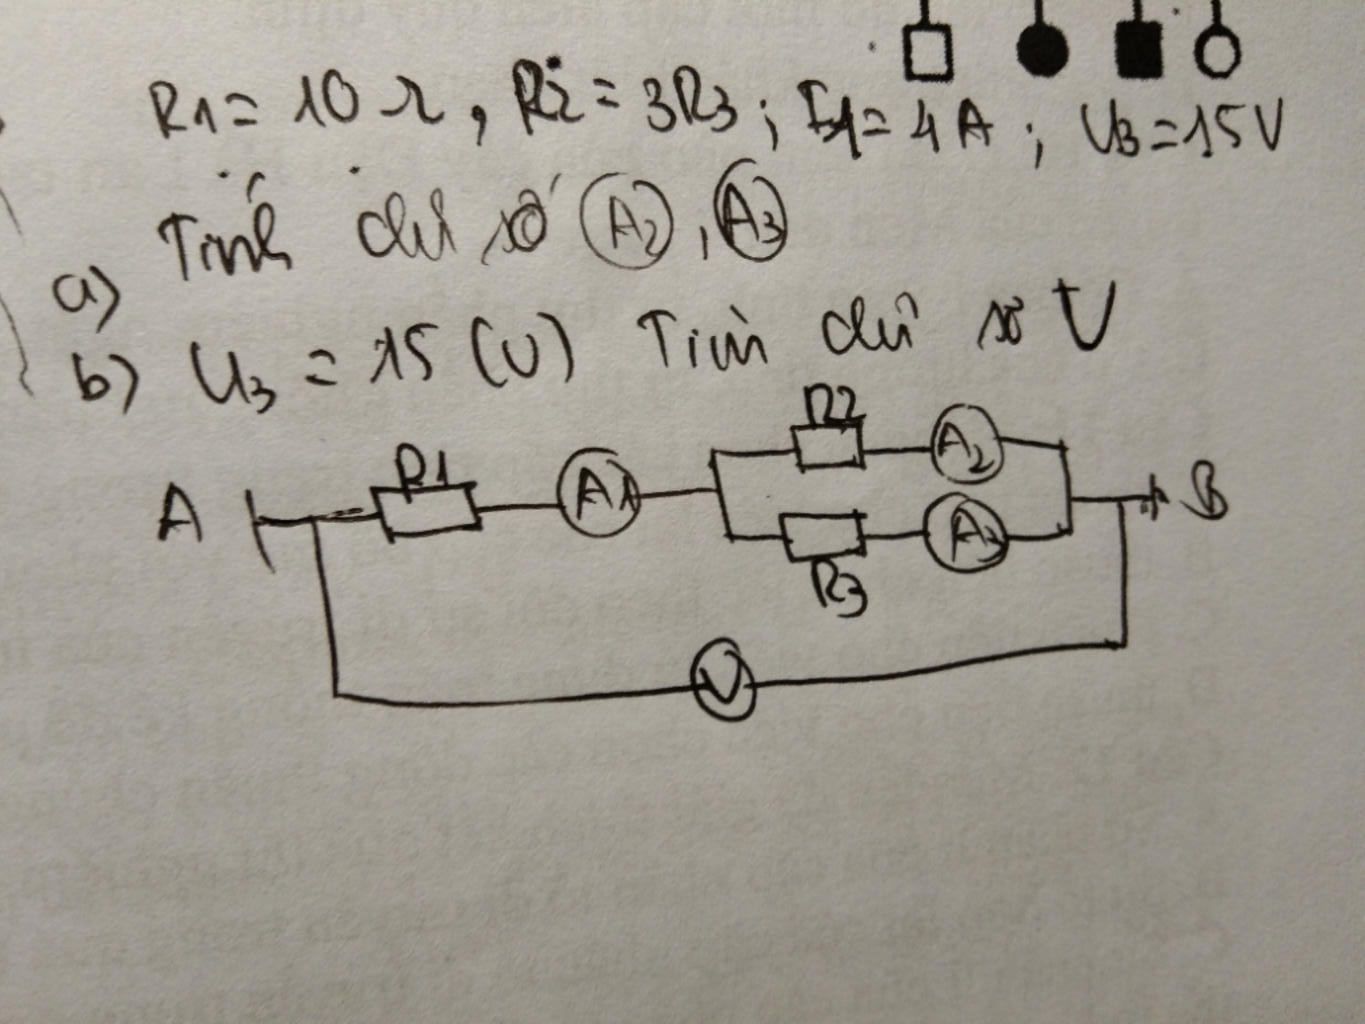 R1 = 10 Ω, R2 = 3R3; I1 = 4A; U3 = 15V
a) Tính chỉ số (A2), (A3)
b) U3 = 15 (V) Tìm chỉ số V
R2
R1
A A1 A2 B
A3
R3
V